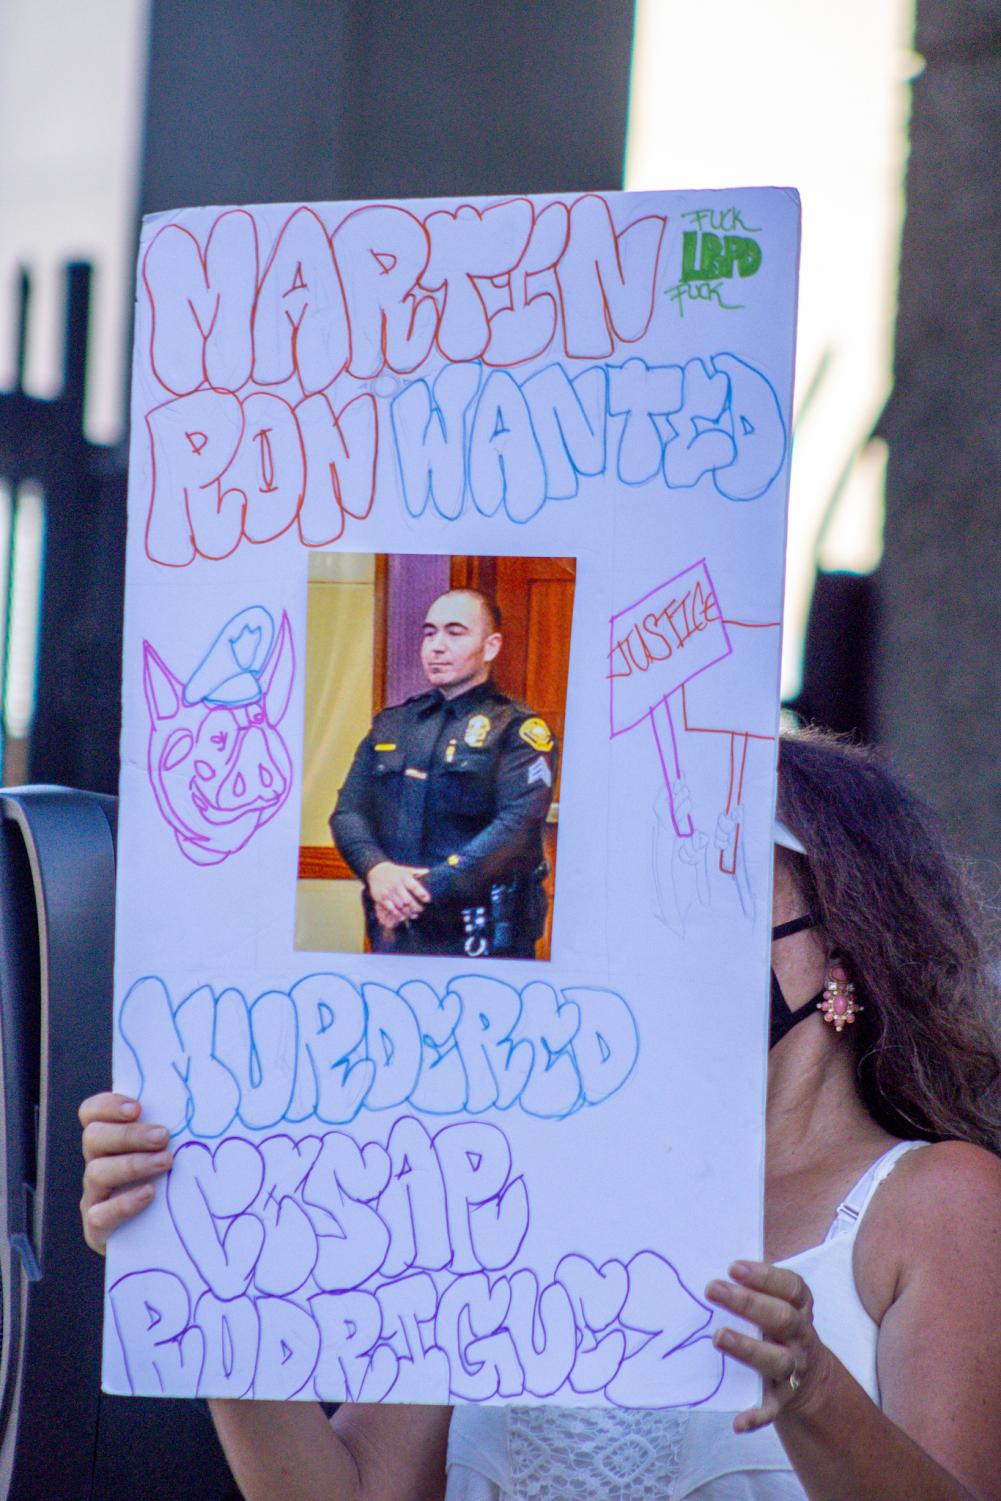 MARTIN
FUCK
LBPD
FUCK
RON WANTED
JUSTICE
MURDERED
CESAR
RODRIGUEZ